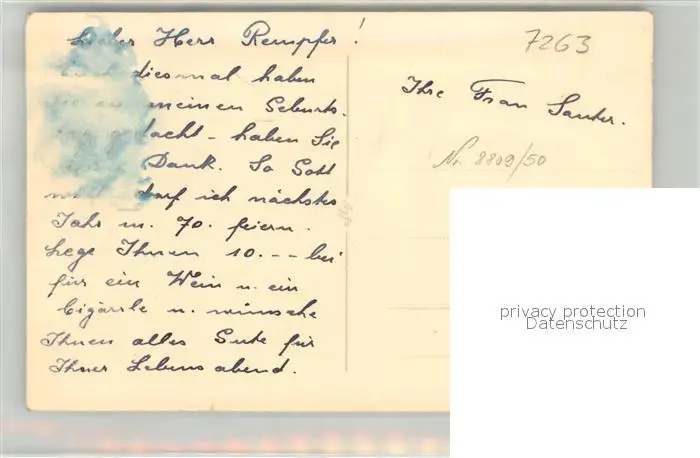 Lieber Herr Rempfer!
Auch diesmal haben
Sie an meinen Geburts-
tag gedacht - haben Sie
Dank. So Gott
will darf ich nächstes
Jahr m. 70. feiern.
Lege Ihnen 10.-- bei
für ein Wein u. ein
Cigärrle u. wünsche
Ihnen alles Gute für
Ihren Lebensabend.
Ihre Frau Sauter.
7263
Nr. 8809/50
privacy protection
Datenschutz